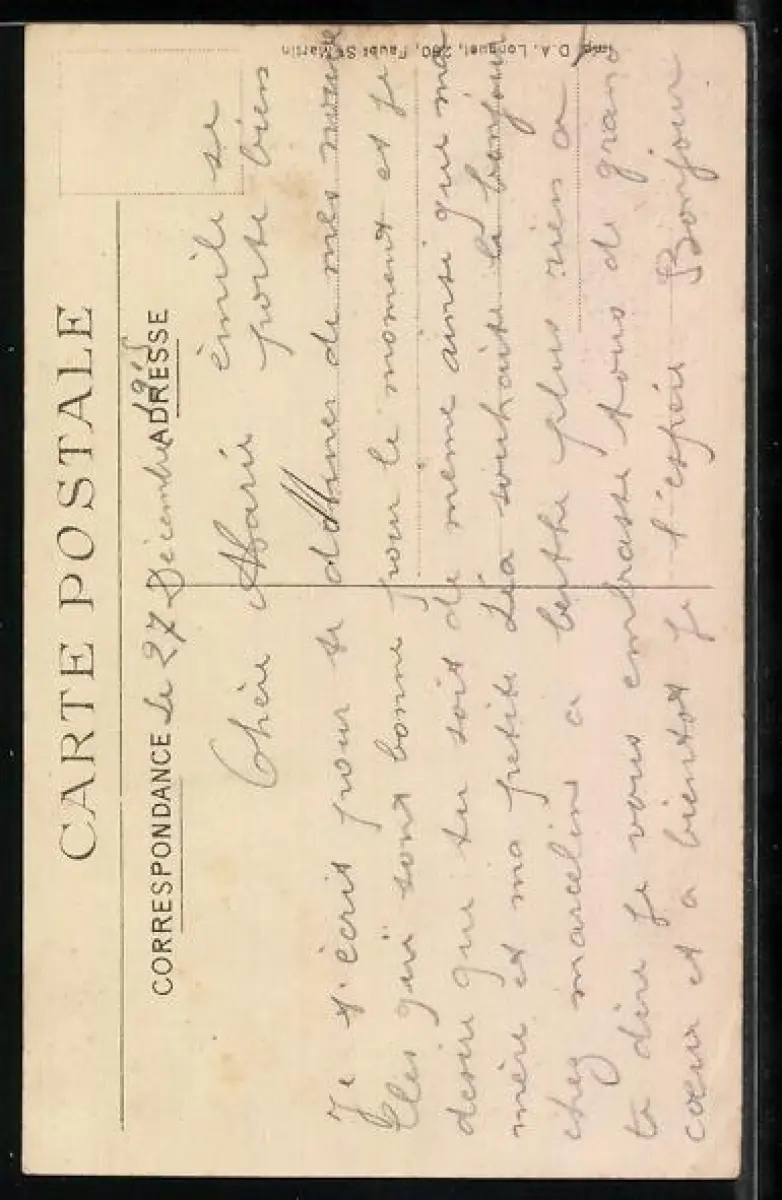 CARTE POSTALE
CORRESPONDANCE
ADRESSE
Le 27 Décembre 1915
émile se
porte bien
Chère Marie
Je t'écrit pour te donner de mes nouve
lles qui sont bonne pour le moment et je
desire que tu soit de même ainsi que ma
mère et ma petite Léa souhaite le bonjour
chez marcelin a berthe plus rien a
te dire je vous embrasse tous de grand
cœur et a bientot je l'espère Bonjour
Imp. D.A. Longuet, 250, Faubg St Martin